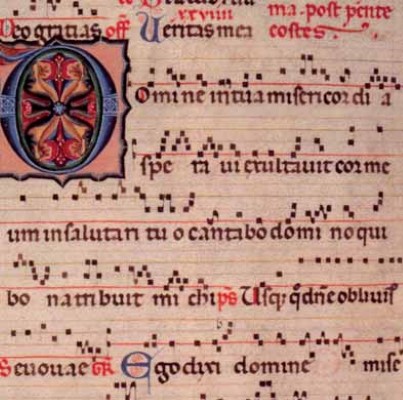 Deo gratias off Ueritas mea
xxviiii
ma. post pente
costes.
Domine in tua misericordia
spe ra ui exultauit cor me
um in salutari tu o cantabo domi no qui
bo na tribuit mi chi ps Usq; qd dne obliuis
Seuouae Gr Ego dixi domine mise